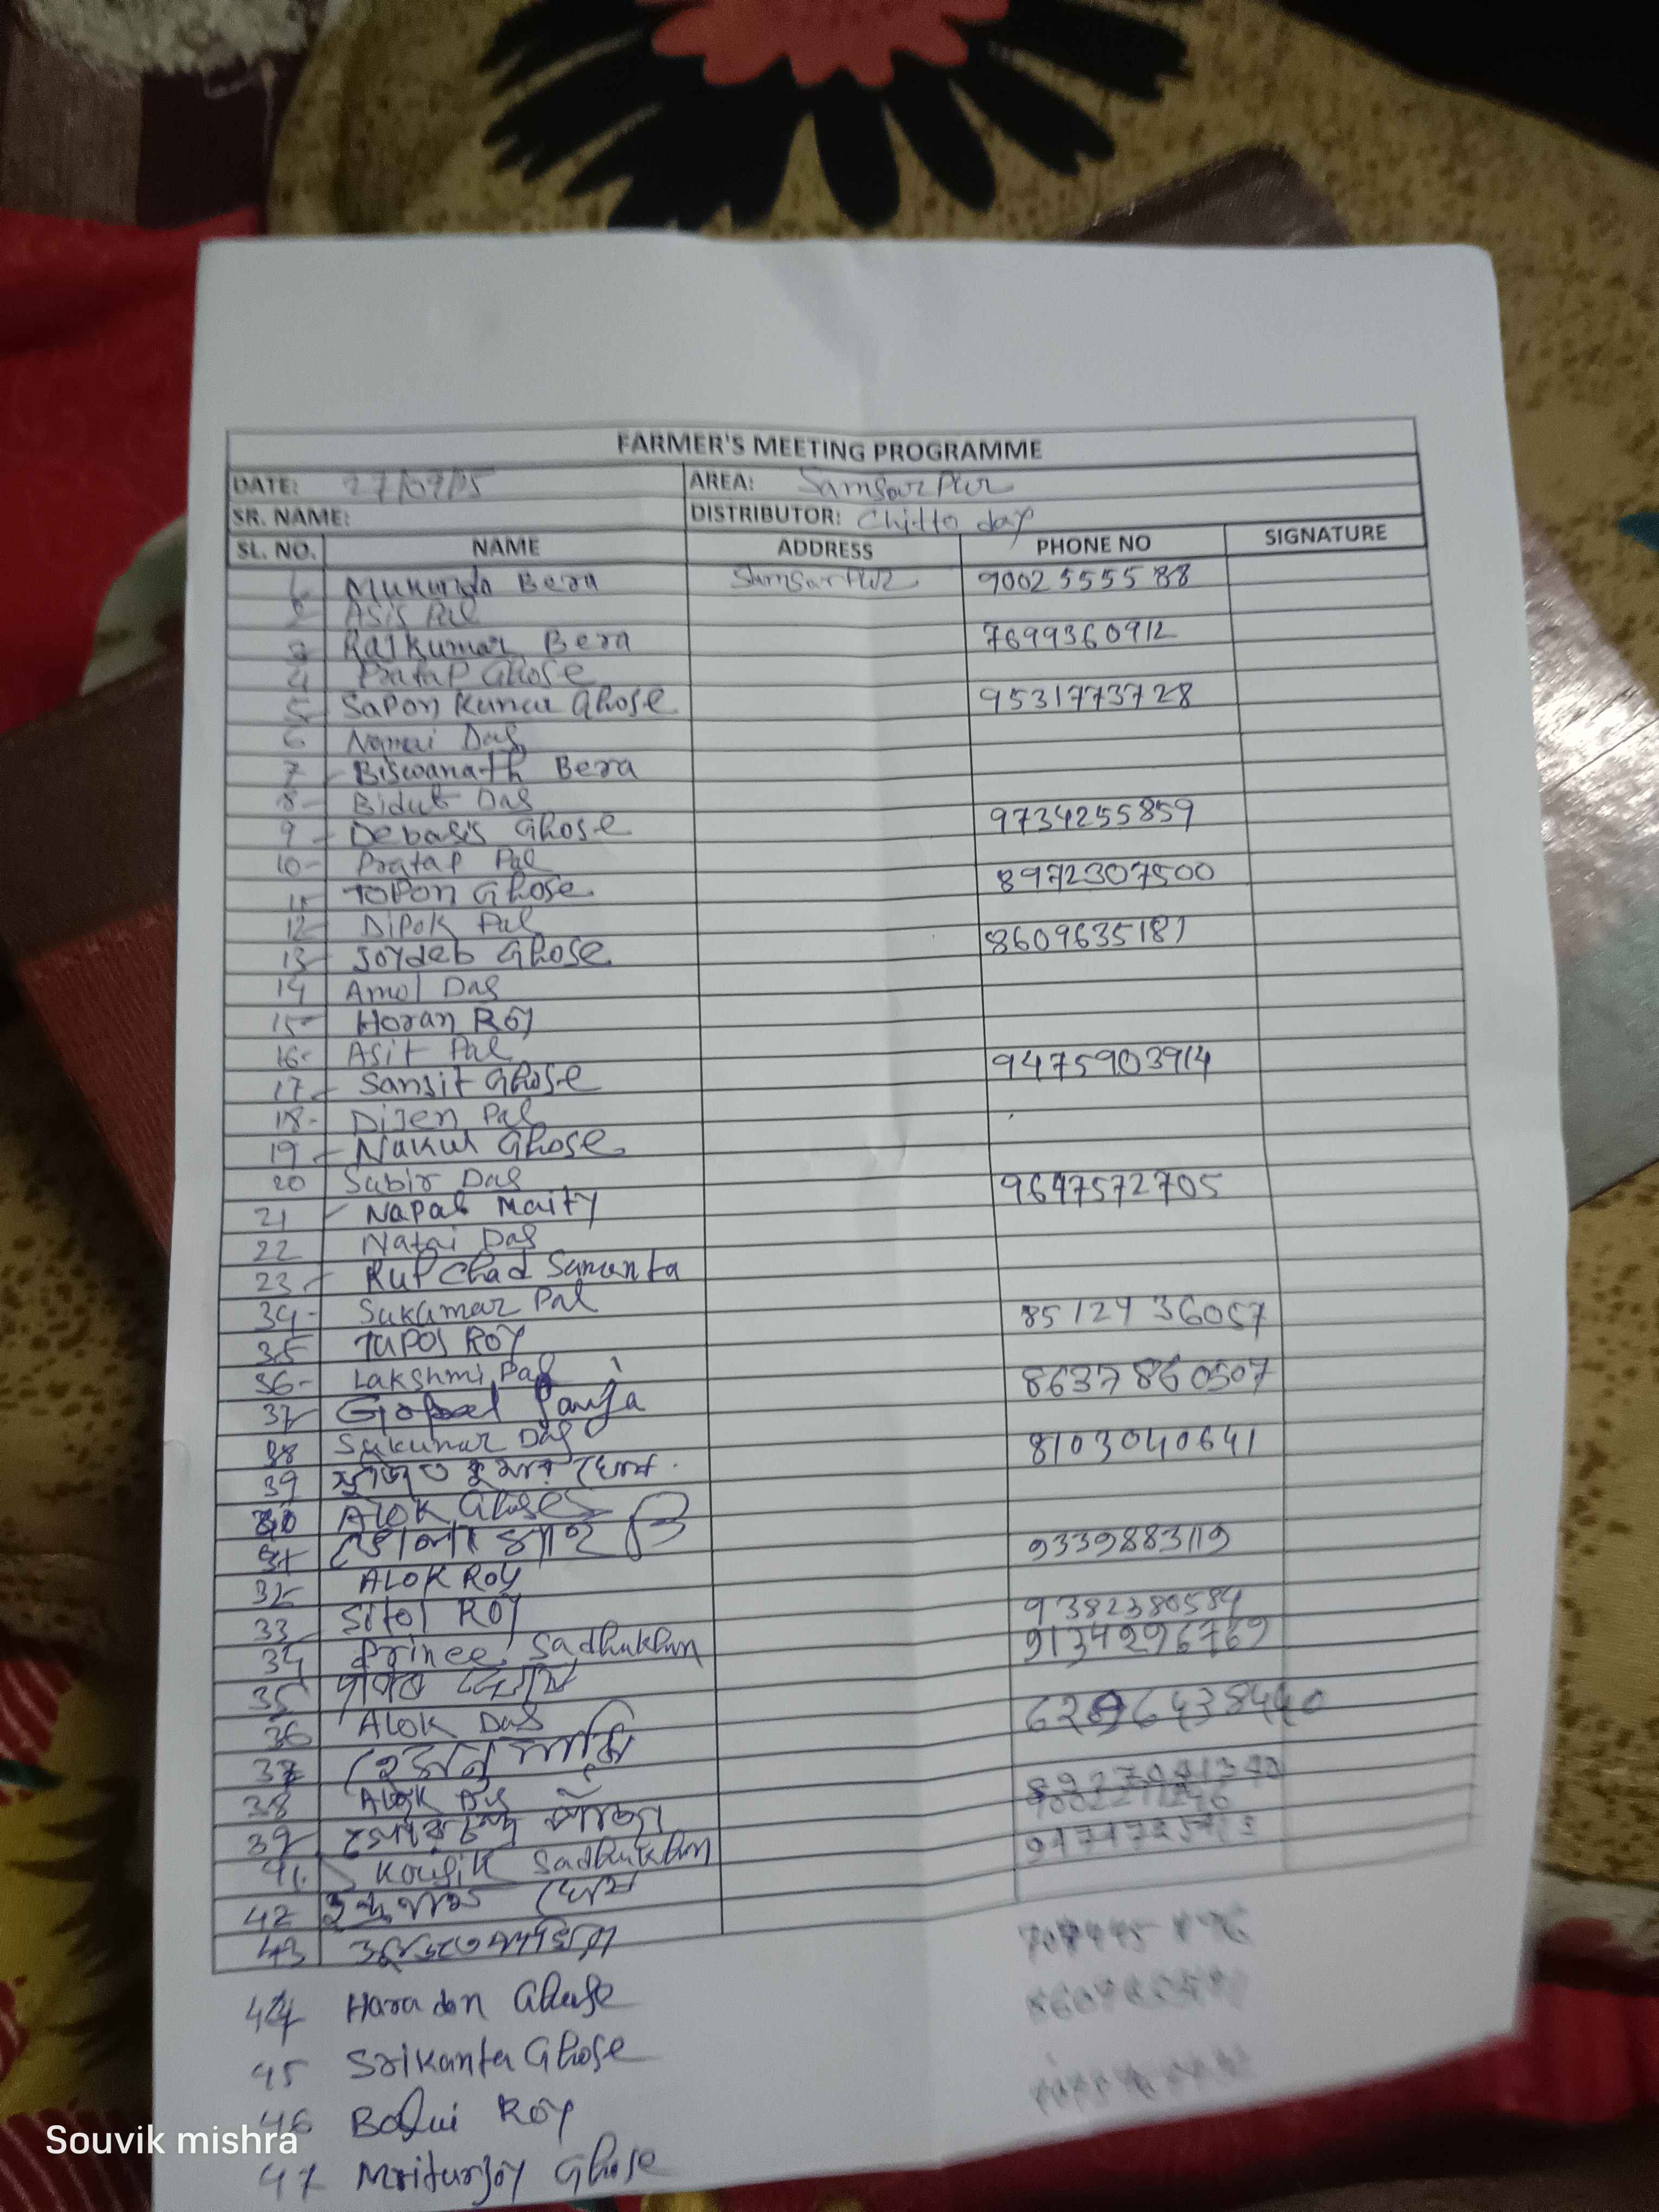 FARMER'S MEETING PROGRAMME
DATE: 27/07/25 AREA: Samsarpur
SR. NAME: DISTRIBUTOR: Chitto day
SL. NO. NAME ADDRESS PHONE NO SIGNATURE
1 Mukunda Bera Samsarpur 9002555588
2 Asis Pal
3 Rajkumar Bera 7699360912
4 Pratap Ghose
5 Sapon Kumar Ghose 9531773728
6 Namai Das
7 Biswanath Bera
8 Bidut Das
9 Debasis Ghose 9734255859
10 Pratap Pal
11 Topon Ghose 8972307500
12 Dipok Pal
13 Joydeb Ghose 8609635181
14 Amol Das
15 Horan Roy
16 Asit Pal
17 Sanjit Ghose 9475903914
18 Dijen Pal
19 Nakul Ghose
20 Subir Das
21 Napal Maity 9647572705
22 Natai Das
23 Rupchad Samanta
34 Sukumar Pal
35 Tapos Roy 8512936057
36 Lakshmi Pal
37 Gopal Panja 8637860507
38 Sukumar Das
39 সুজিত কুমার ঘোষ 8103040641
Alok Ghose
31 ভোলা মাইতি
32 Alok Roy 9339883119
33 Sitol Roy
34 Prince Sadhukhan 9382380584
35 ঘোষ 9134296769
36 Alok Das
37 6296438440
38 Alok Das
39
41 Kousik Sadhukhan
42 ঘোষ
43
44 Haradon Ghose
45 Srikanta Ghose
46 Balui Roy
47 Mritunjoy Ghose
Souvik mishra